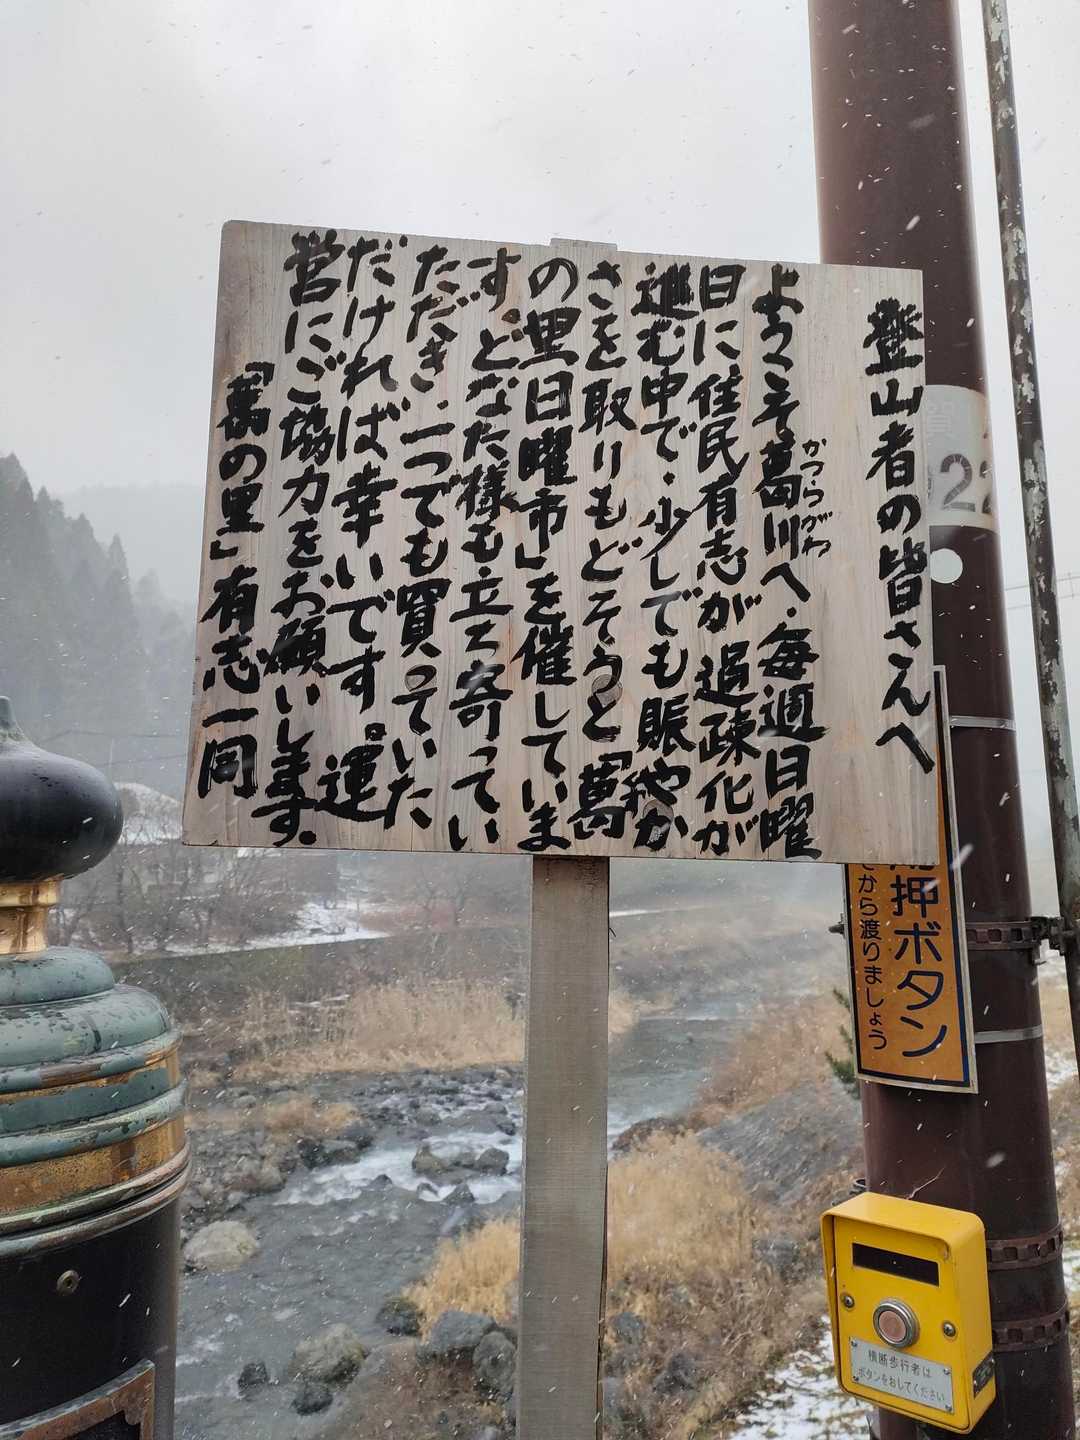 登山者の皆さんへ
ようこそ葛川へ・毎週日曜
かつらがわ
日に住民有志が過疎化が
進む中で・少しでも賑やか
さを取りもどそうと「葛
の里日曜市」を催していま
す。どなた様も立ち寄ってい
ただき・一つでも買っていた
だければ幸いです。運
営にご協力をお願いします.
「葛の里」有志一同
押ボタン
から渡りましょう
横断歩行者は
ボタンをおしてください